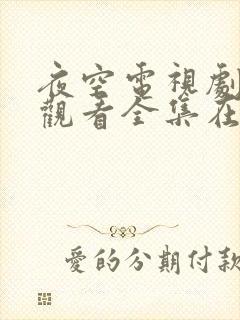 夜空電視劇
觀看全集在
愛的分期付款